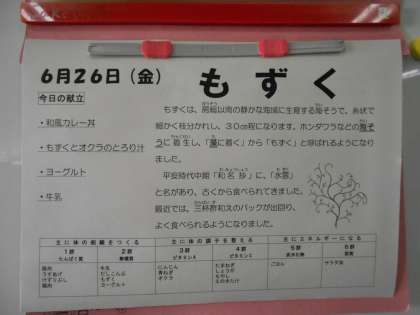 6月26日（金）
もずく
今日の献立
・和風カレー丼
・もずくとオクラのとろり汁
・ヨーグルト
・牛乳
もずくは、房総以南の静かな海域に生育する海そうで、糸状で
細かく枝分かれし、30cm程になります。ホンダワラなどの海そ
うに着生し、「藻に着く」から「もずく」と呼ばれるようになり
ました。
平安時代中期「和名抄」に、「水雲」
と名があり、古くから食べられてきました。
最近では、三杯酢和えのパックが出回り、
よく食べられるようになりました。
主に体の組織をつくる 主に体の調子を整える 主にエネルギーになる
1群 2群 3群 4群 5群 6群
たんぱく質 無機質 ビタミンA ビタミンC 炭水化物 脂質
鶏肉 牛乳 にんじん たまねぎ ごはん サラダ油
うずあげ だしこんぶ 青ねぎ しょうが
けずりぶし もずく オクラ もやし
鶏肉 ヨーグルト えのきたけ